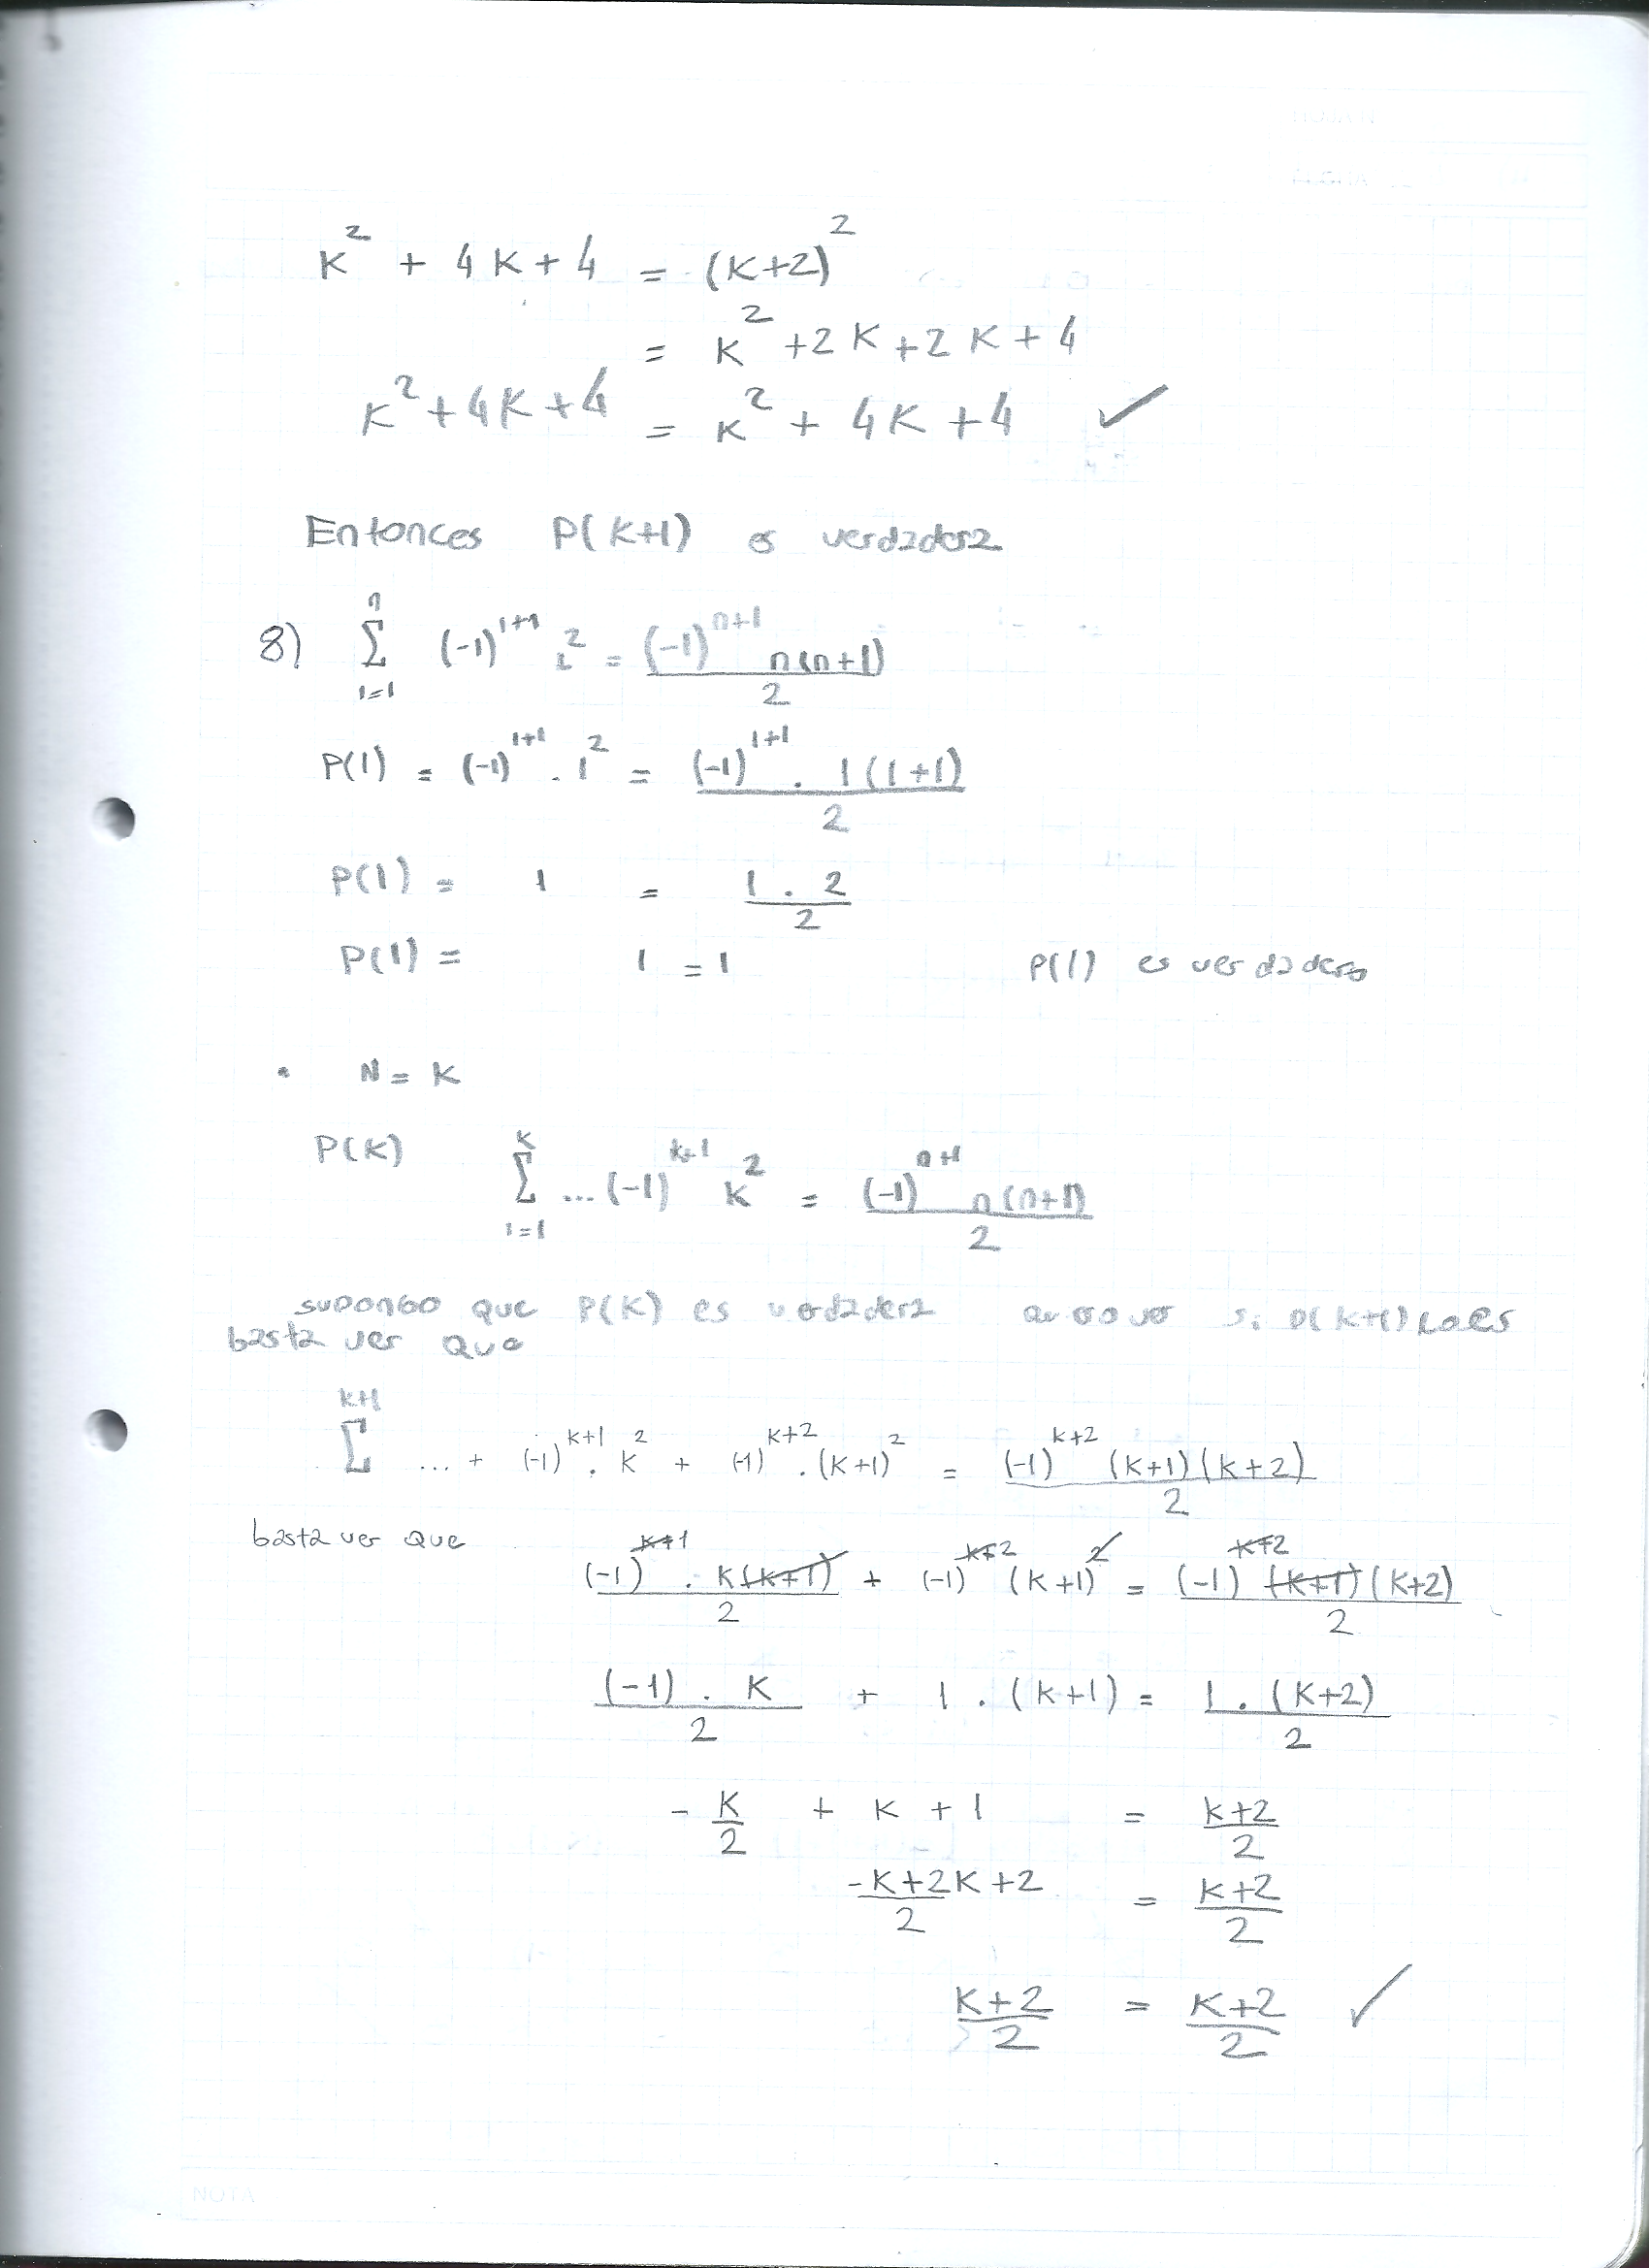 k² + 4k + 4 = (k+2)²
= k² + 2k + 2k + 4
k² + 4k + 4 = k² + 4k + 4 ✓
Entonces P(k+1) es verdadera
8) n Σ i=1 (-1)^(i+1) i² = (-1)^(n+1) n(n+1) / 2
P(1) = (-1)^(1+1) . 1² = (-1)^(1+1) . 1(1+1) / 2
P(1) = 1 = 1 . 2 / 2
P(1) = 1 = 1 P(1) es verdadero
• N = K
P(K) k Σ i=1 ... (-1)^(k+1) k² = (-1)^(n+1) n(n+1) / 2
supongo que P(K) es verdadera si P(k+1) lo es
basta ver que
k+1 Σ ... + (-1)^(k+1) . k² + (-1)^(k+2) . (k+1)² = (-1)^(k+2) (k+1)(k+2) / 2
basta ver que (-1)^(k+1) . k(k+1) / 2 + (-1)^(k+2) (k+1)² = (-1)^(k+2) (k+1)(k+2) / 2
(-1) . K / 2 + 1 . (k+1) = 1 . (k+2) / 2
- K / 2 + k + 1 = k+2 / 2
-k+2k+2 / 2 = k+2 / 2
k+2 / 2 = k+2 / 2 ✓
NOTA